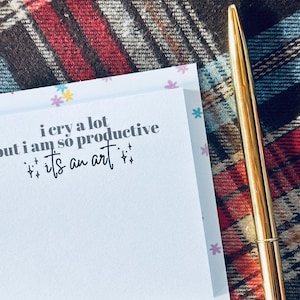 i cry a lot
but i am so productive
its an art